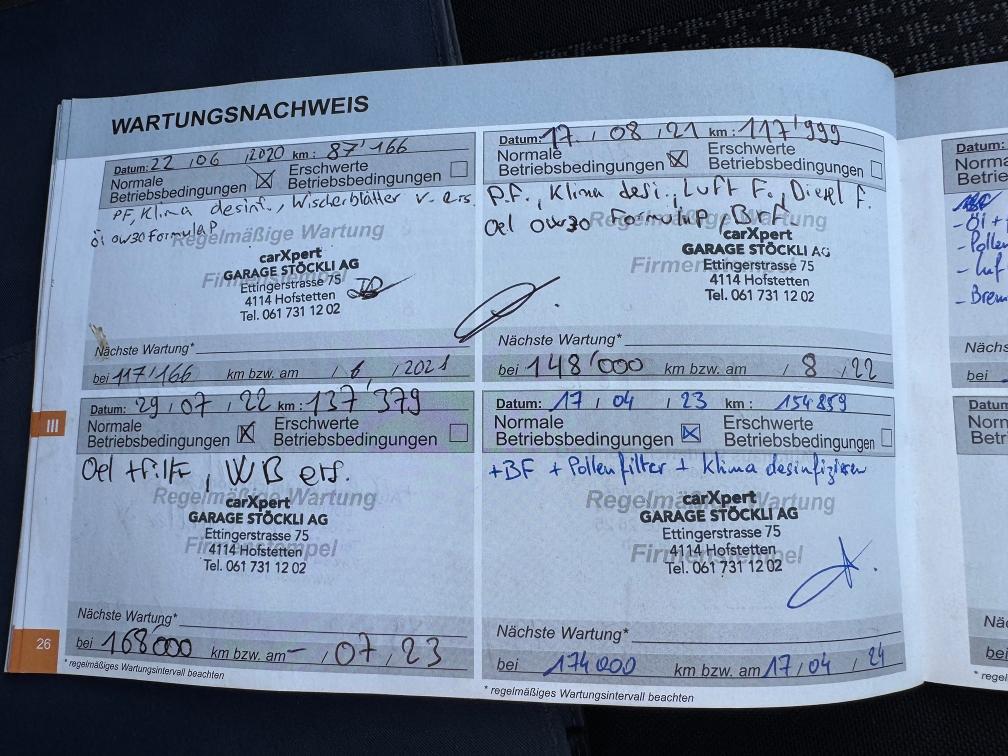 WARTUNGSNACHWEIS
Datum: 22 / 06 / 2020 km : 87'166
Normale Betriebsbedingungen ☒ Erschwerte Betriebsbedingungen ☐
PF, Klima desinf., Wischerblätter v. ers.
Öl 0W30 Formula P
Regelmäßige Wartung
carXpert
GARAGE STÖCKLI AG
Firmenstempel
Ettingerstrasse 75
4114 Hofstetten
Tel. 061 731 12 02
Nächste Wartung*
bei 117'166 km bzw. am / 6 / 2021
Datum: 17 / 08 / 21 km : 117'999
Normale Betriebsbedingungen ☒ Erschwerte Betriebsbedingungen ☐
P.F., Klima desi., Luft F., Diesel F.
Oel 0W30 Formula P, BrF
Regelmäßige Wartung
carXpert
GARAGE STÖCKLI AG
Firmenstempel
Ettingerstrasse 75
4114 Hofstetten
Tel. 061 731 12 02
Nächste Wartung*
bei 148'000 km bzw. am / 8 / 22
III
Datum: 29 / 07 / 22 km : 137'379
Normale Betriebsbedingungen ☒ Erschwerte Betriebsbedingungen ☐
Oel + Filt, WB ers.
Regelmäßige Wartung
carXpert
GARAGE STÖCKLI AG
Ettingerstrasse 75
Firmenstempel
4114 Hofstetten
Tel. 061 731 12 02
Nächste Wartung*
bei 168'000 km bzw. am – / 07 / 23
* regelmäßiges Wartungsintervall beachten
Datum: 17 / 04 / 23 km : 154859
Normale Betriebsbedingungen ☒ Erschwerte Betriebsbedingungen ☐
+BF + Pollenfilter + Klima desinfizieren
Regelmäßige Wartung
carXpert
GARAGE STÖCKLI AG
Ettingerstrasse 75
Firmenstempel
4114 Hofstetten
Tel. 061 731 12 02
Nächste Wartung*
bei 174000 km bzw. am 17 / 04 / 24
* regelmäßiges Wartungsintervall beachten
26
Datum:
- Öl +
- Pollen
- Luf
- Brem
Nächs
bei
Datum:
Nä
bei
* regel